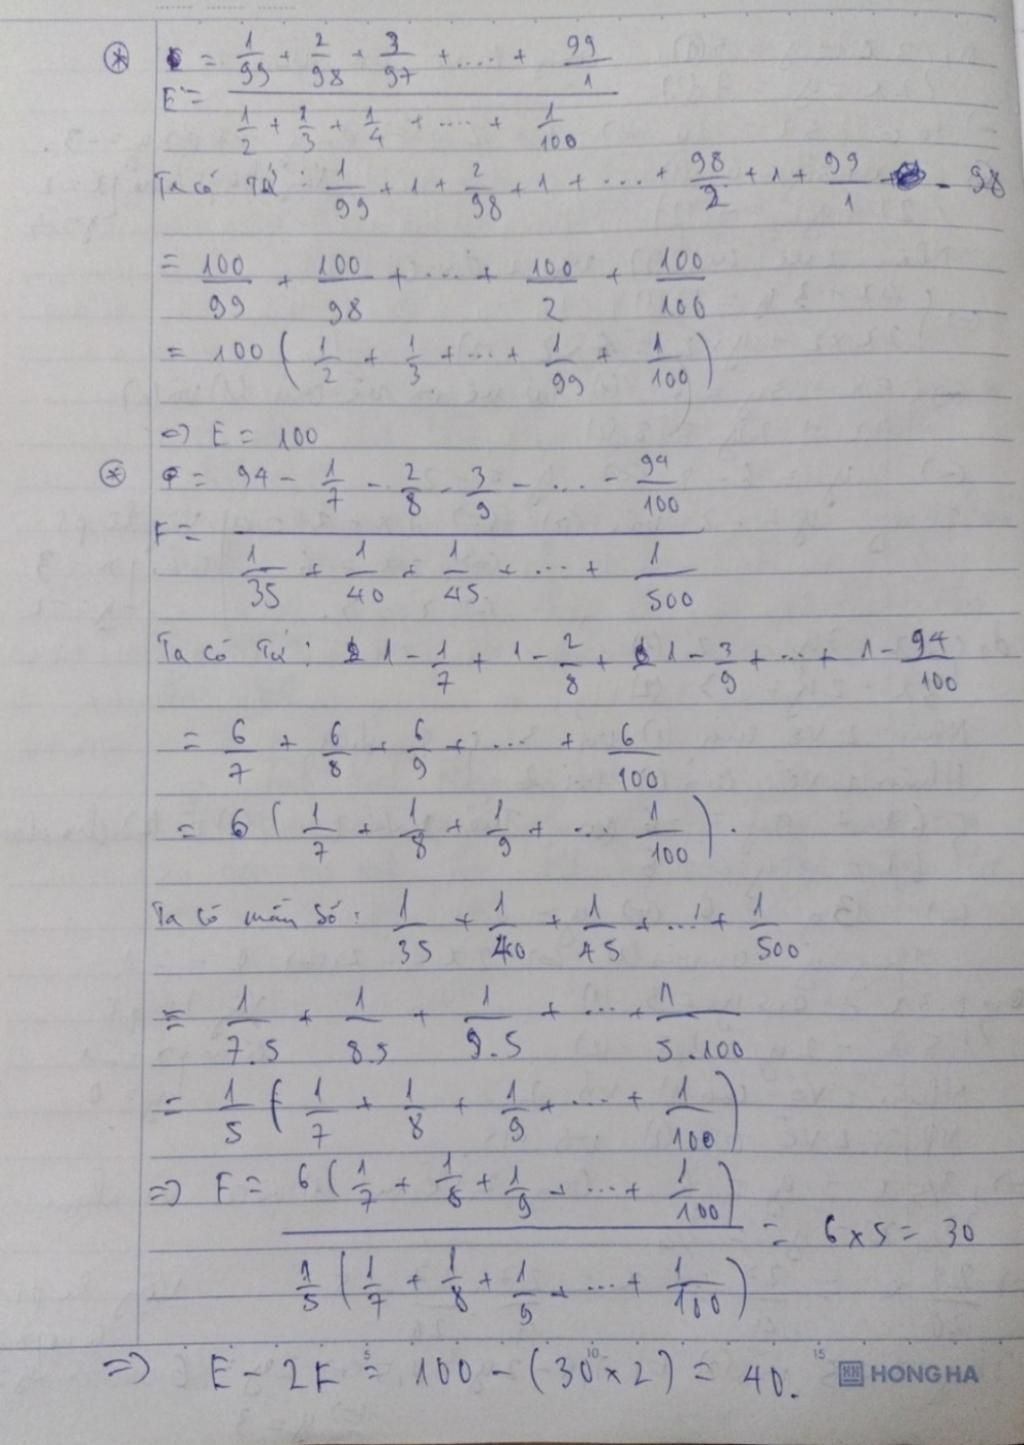 E = (1/99 + 2/98 + 3/97 + .... + 99/1) / (1/2 + 1/3 + 1/4 + .... + 1/100)
Ta có Tử : 1/99 + 1 + 2/98 + 1 + ... + 98/2 + 1 + 99/1 - 98
= 100/99 + 100/98 + ... + 100/2 + 100/100
= 100 ( 1/2 + 1/3 + ... + 1/99 + 1/100 )
=> E = 100
F = (94 - 1/7 - 2/8 - 3/9 - ... - 94/100) / (1/35 + 1/40 + 1/45 + ... + 1/500)
Ta có Tử : 1 - 1/7 + 1 - 2/8 + 1 - 3/9 + ... + 1 - 94/100
= 6/7 + 6/8 + 6/9 + ... + 6/100
= 6 ( 1/7 + 1/8 + 1/9 + ... 1/100 ) .
Ta có mẫu số : 1/35 + 1/40 + 1/45 + ... + 1/500
= 1/7.5 + 1/8.5 + 1/9.5 + ... + 1/5.100
= 1/5 ( 1/7 + 1/8 + 1/9 + ... + 1/100 )
=> F = 6 ( 1/7 + 1/8 + 1/9 + ... + 1/100 ) / 1/5 ( 1/7 + 1/8 + 1/9 + ... + 1/100 ) = 6 x 5 = 30
=> E - 2F = 100 - (30 x 2) = 40.
5 10 15
HONG HA